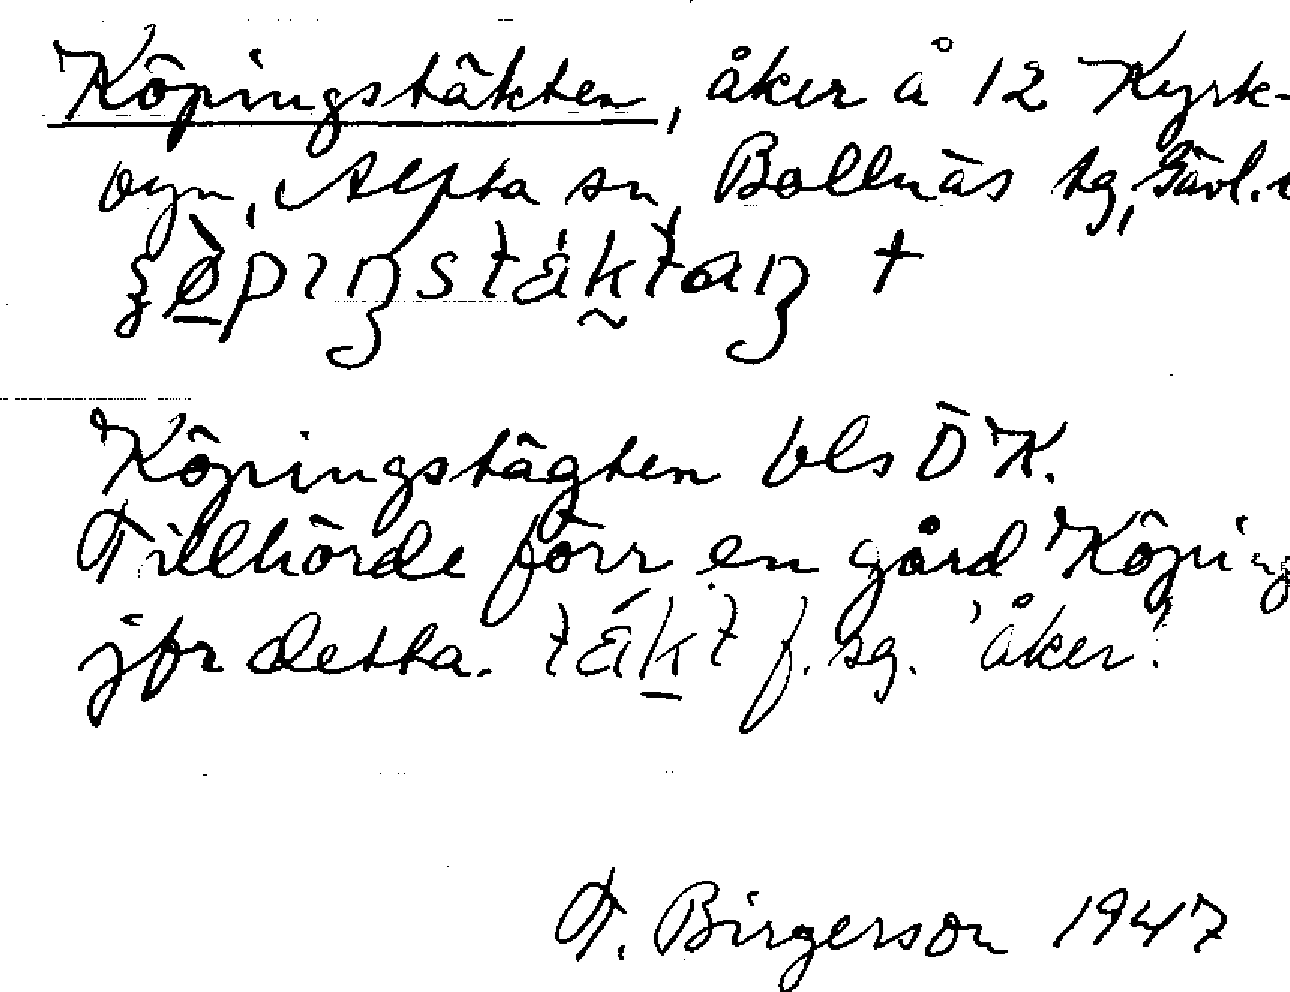 Köpingstäkten, åker å 12 Kyrk-
byn, Alfta sn, Bollnäs tg, Gävl.
Köpingstägten bls ÖK.
Tillhörde förr en gård Köping
jfr detta. täkt f. sg. 'åker'.
T. Birgerson 1947